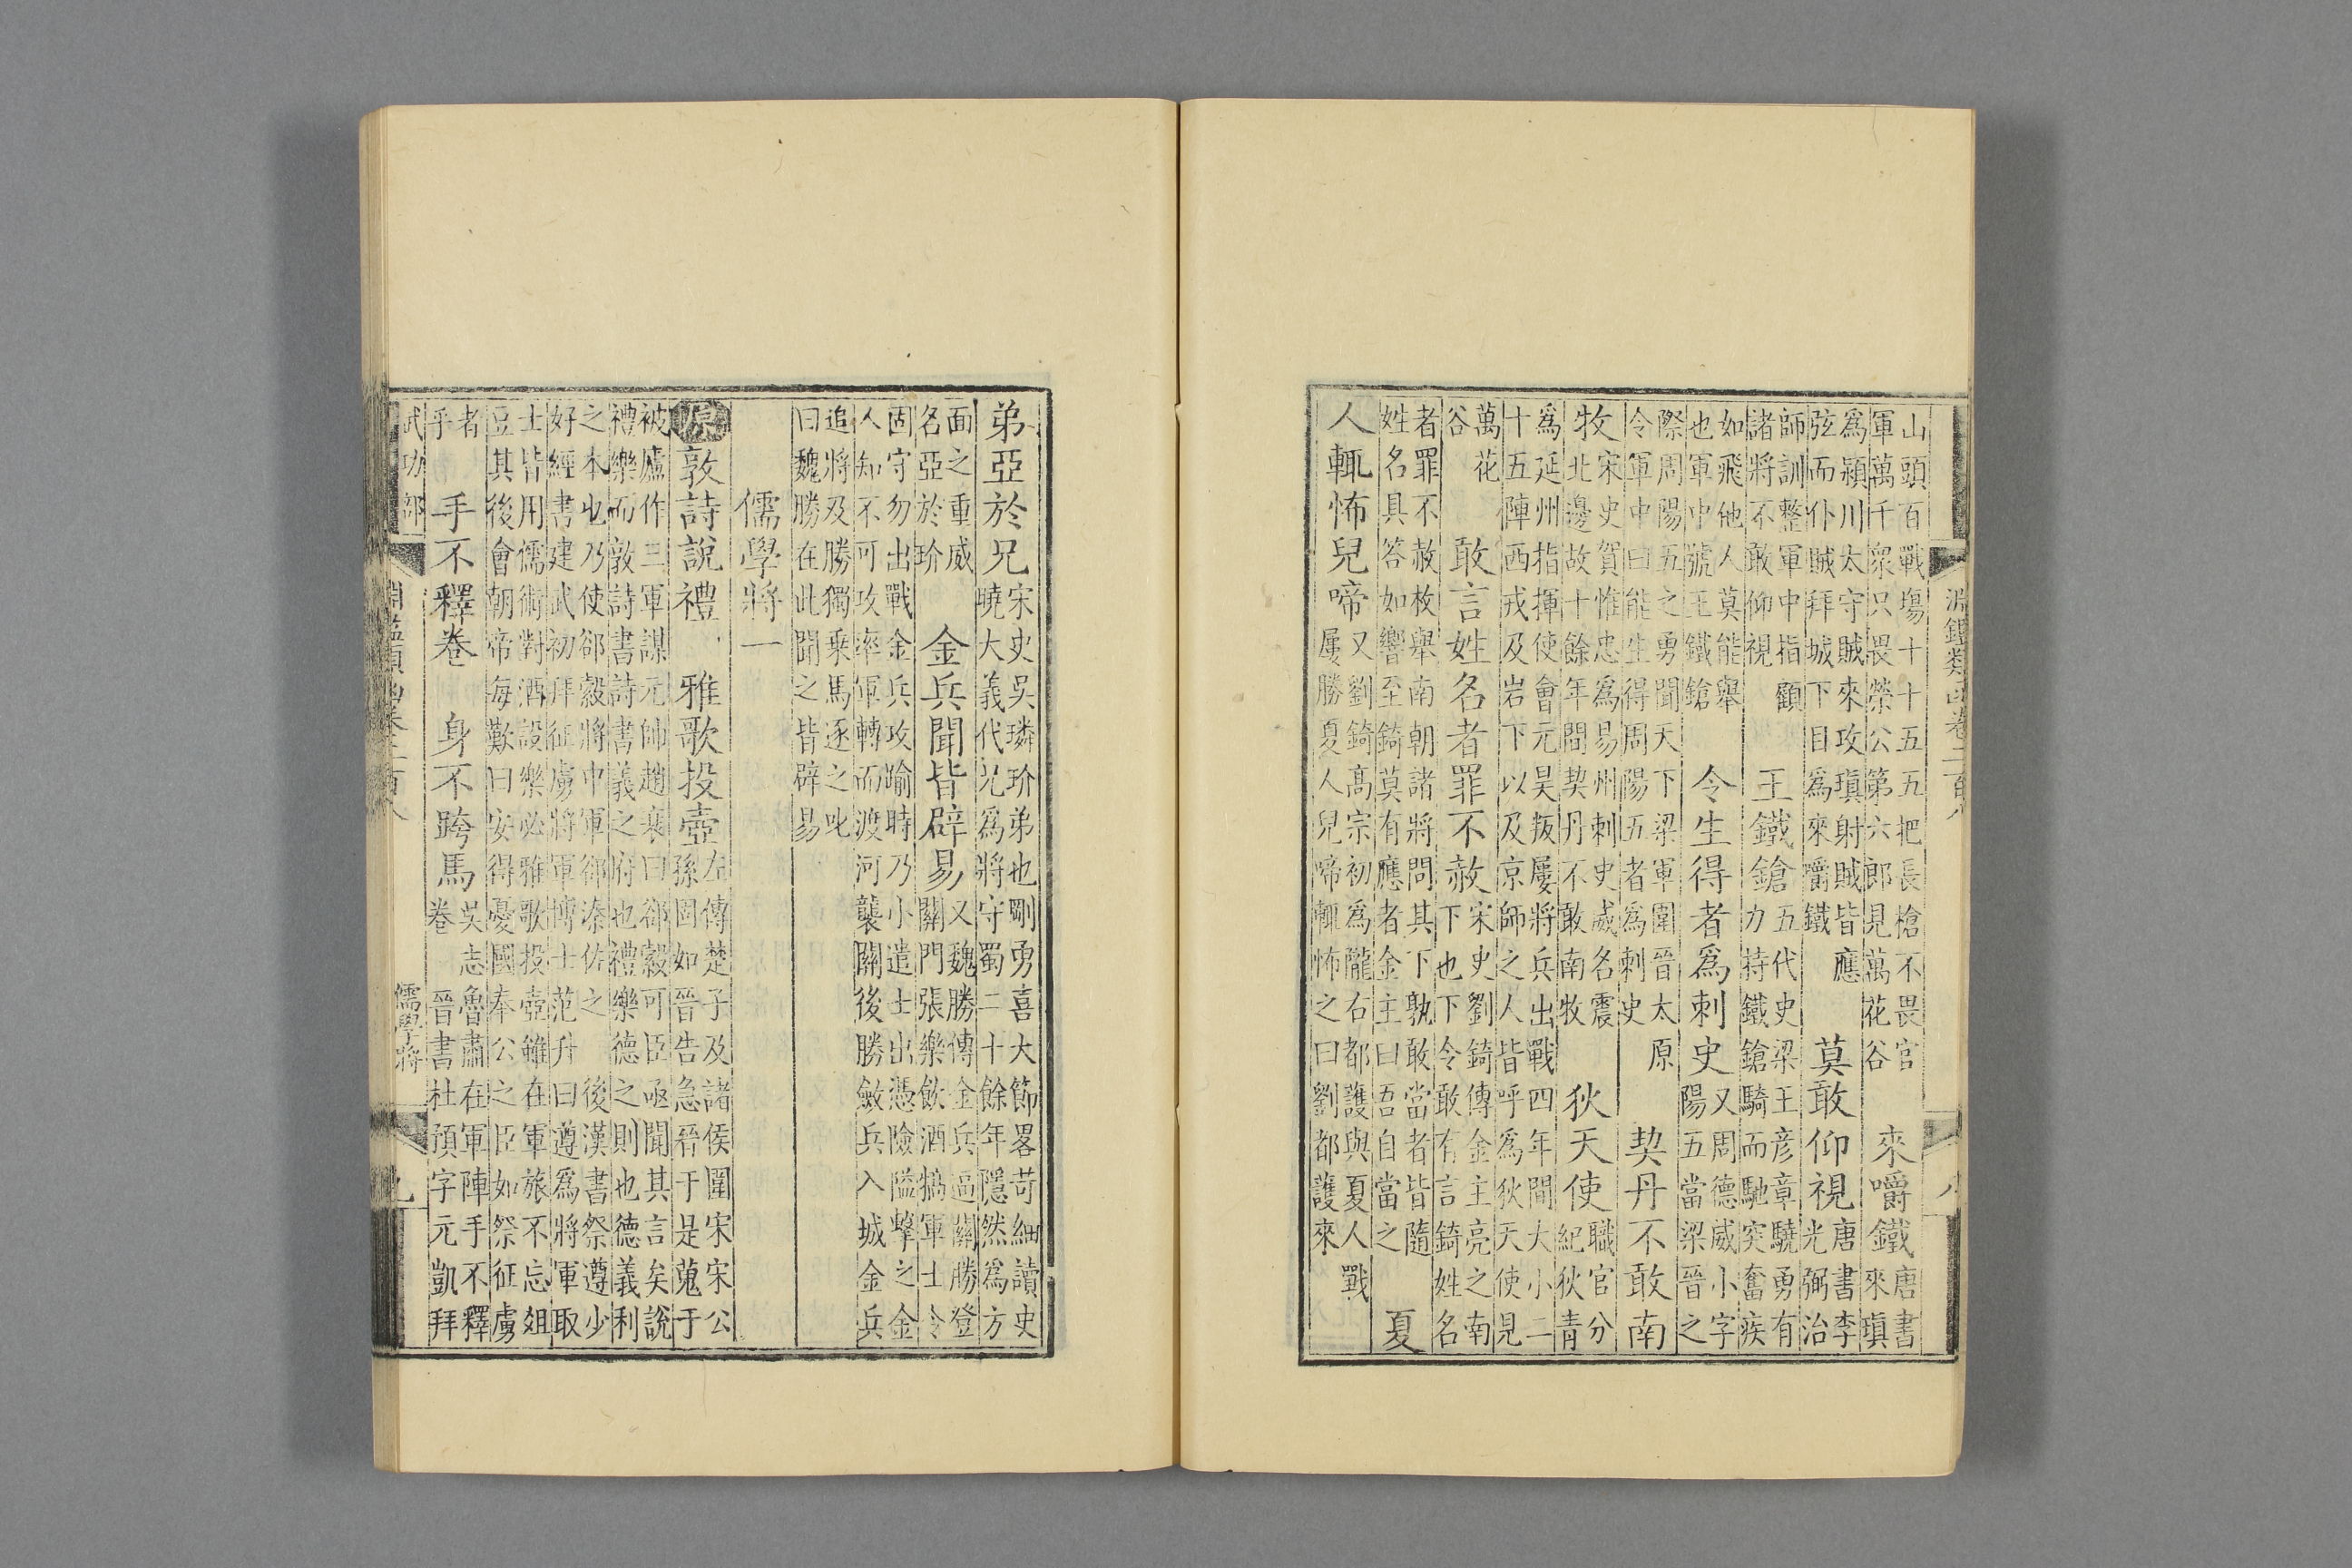 淵鑑類函卷二百八 八
山頭百戰場十十五五把長槍不畏官
軍萬千衆只畏榮公第六郎見萬花谷
來嚼鐵
唐書
來瑱
爲潁川太守賊來攻瑱射賊皆應
弦而仆賊拜城下目爲來嚼鐵
莫敢仰視
唐書李
光弼治
師訓整軍中指顧
諸將不敢仰視
王鐵鎗
五代史梁王彦章驍勇有
力持鐵鎗騎而馳突奮疾
如飛他人莫能舉
也軍中號王鐵鎗
令生得者爲刺史
又周德威小字
陽五當梁晉之
際周陽五之勇聞天下梁軍圍晉太原
令軍中曰能生得周陽五者爲刺史
契丹不敢南
牧
宋史賀惟忠爲易州刺史威名震
北邊故十餘年間契丹不敢南牧
狄天使
職官分
紀狄青
爲延州指揮使會元昊叛屢將兵出戰四年間大小二
十五陣西戎及岩下以及京師之人皆呼爲狄天使見
萬花
谷
敢言姓名者罪不赦
宋史劉錡傳金主亮之南
下也下令敢有言錡姓名
者罪不赦枚舉南朝諸將問其下孰敢當者皆隨
姓名具答如響至錡莫有應者金主曰吾自當之
夏
人輒怖兒啼
又劉錡高宗初爲隴右都護與夏人戰
屢勝夏人兒啼輒怖之曰劉都護來
弟亞於兄
宋史吳璘玠弟也剛勇喜大節畧苛細讀史
曉大義代兄爲將守蜀二十餘年隱然爲方
面之重威
名亞於玠
金兵聞皆辟易
又魏勝傳金兵逼關勝登
關門張樂飲酒犒軍士令
固守勿出戰金兵攻踰時乃小遣士出憑險隘擊之金
人知不可攻率軍轉而渡河襲關後勝斂兵入城金兵
追將及勝獨乗馬逐之叱
曰魏勝在此聞之皆辟易
儒學將一
原
敦詩說禮
雅歌投壺
左傳楚子及諸侯圍宋宋公
孫固如晉告急晉于是蒐于
被廬作三軍謀元帥趙衰曰郤縠可臣亟聞其言矣說
禮樂而敦詩書詩書義之府也禮樂德之則也德義利
之本也乃使郤縠將中軍郤溱佐之 後漢書祭遵少
好經書建武初拜征虜將軍博士范升曰遵爲將軍取
士皆用儒術對酒設樂必雅歌投壺雖在軍旅不忘俎
豆其後會朝帝每歎曰安得憂國奉公之臣如祭征虜
者
乎
手不釋卷
身不跨馬
吳志魯肅在軍陣手不釋
卷 晉書杜預字元凱拜
武功部 淵鑑類函卷二百八 儒學將 九